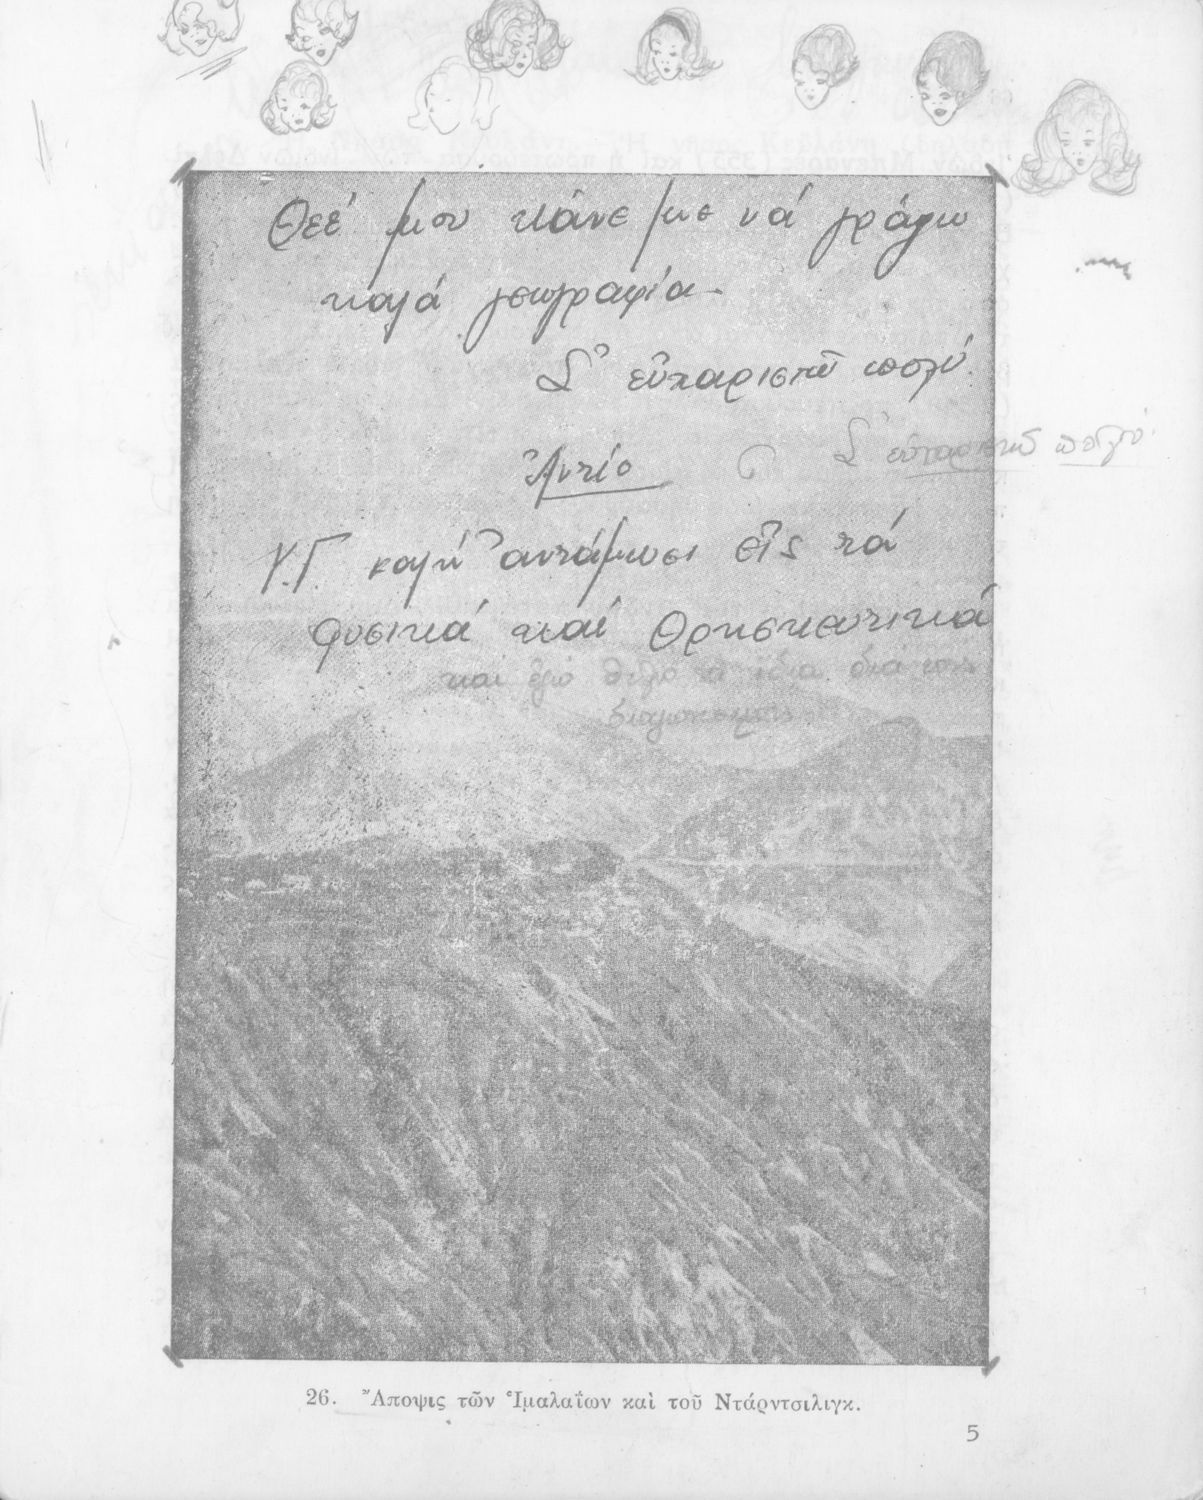 Θεέ μου κάνε με νά γράψω
καλά γεωγραφία.
Σ' εὐχαριστῶ πολύ.
Σ' εὐχαριστῶ πολύ.
Ἀντίο
Υ.Γ καλή ἀντάμωσι εἰς τά
φυσικά καί θρησκευτικά
και ἐγώ θέλω τά ἴδια διά
26. Ἄποψις τῶν Ἱμαλαΐων καὶ τοῦ Ντάρντσιλιγκ.
5